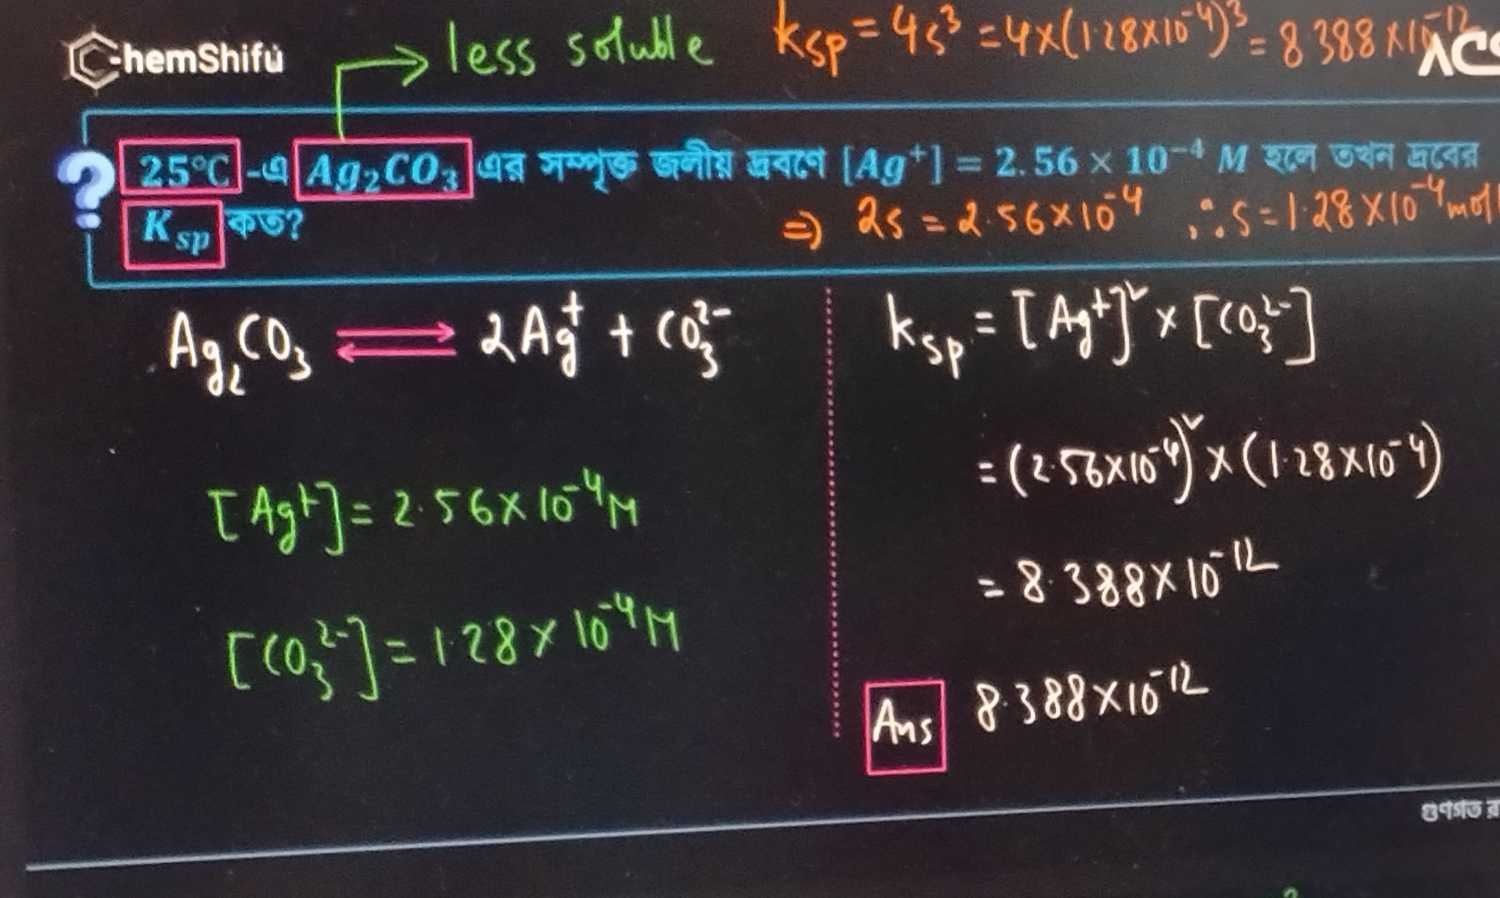 ChemShifu → less soluble Ksp = 4s³ = 4×(1.28×10⁻⁴)³ = 8.388×10⁻¹² ACS
25°C -এ Ag₂CO₃ এর সম্পৃক্ত জলীয় দ্রবণে [Ag⁺] = 2.56 × 10⁻⁴ M হলে তখন দ্রবের
Ksp কত? ⇒ 2s = 2.56×10⁻⁴ ∴ s = 1.28×10⁻⁴ mol/
Ag₂CO₃ ⇌ 2Ag⁺ + CO₃²⁻
[Ag⁺] = 2.56×10⁻⁴M
[CO₃²⁻] = 1.28×10⁻⁴M
Ksp = [Ag⁺]² × [CO₃²⁻]
= (2.56×10⁻⁴)² × (1.28×10⁻⁴)
= 8.388×10⁻¹²
Ans 8.388×10⁻¹²
গুণগত র